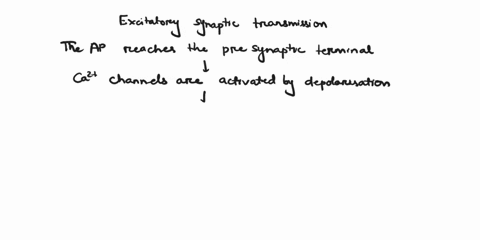 Excitatory synaptic transmission
The AP reaches the pre synaptic terminal
↓
Ca²⁺ channels are activated by depolarisation
↓